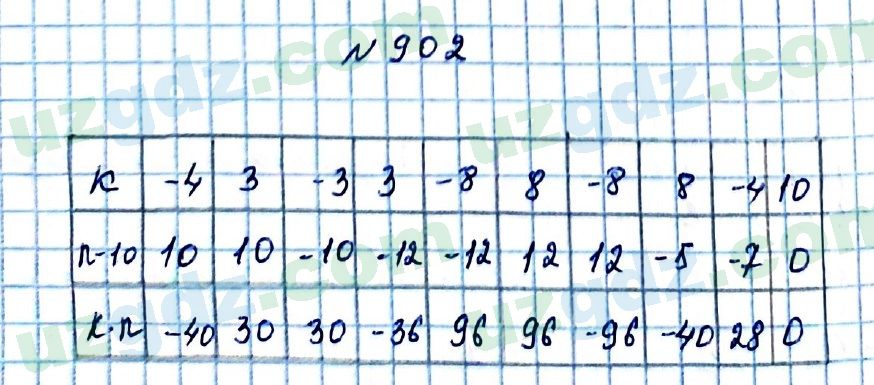 N 902
к -4 3 -3 3 -8 8 -8 8 -4 10
n-10 10 10 -10 -12 -12 12 12 -5 -7 0
к·n -40 30 30 -36 96 96 -96 -40 28 0
uzgdz.com
uzgdz.com
uzgdz.com
uzgdz.com